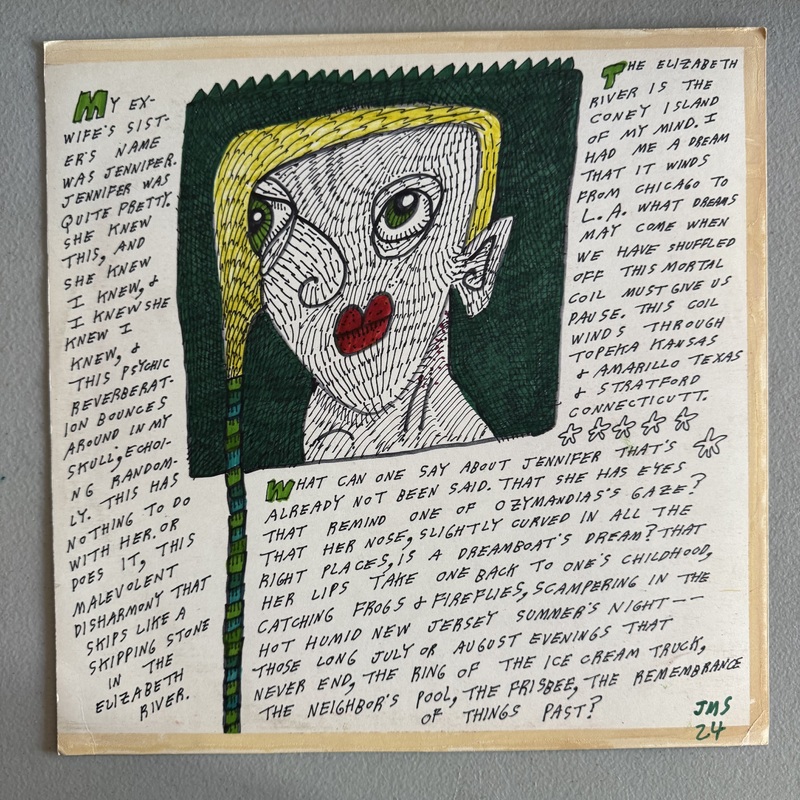 MY EX-
WIFE'S SIST-
ER'S NAME
WAS JENNIFER.
JENNIFER WAS
QUITE PRETTY.
SHE KNEW
THIS, AND
SHE KNEW
I KNEW, &
I KNEW SHE
KNEW I
KNEW, &
THIS PSYCHIC
REVERBERAT-
ION BOUNCES
AROUND IN MY
SKULL; ECHOI-
NG RANDOM-
LY. THIS HAS
NOTHING TO DO
WITH HER. OR
DOES IT, THIS
MALEVOLENT
DISHARMONY THAT
SKIPS LIKE A
SKIPPING STONE
IN THE
ELIZABETH
RIVER.
WHAT CAN ONE SAY ABOUT JENNIFER THAT'S
ALREADY NOT BEEN SAID. THAT SHE HAS EYES
THAT REMIND ONE OF OZYMANDIAS'S GAZE?
THAT HER NOSE, SLIGHTLY CURVED IN ALL THE
RIGHT PLACES, IS A DREAMBOAT'S DREAM? THAT
HER LIPS TAKE ONE BACK TO ONE'S CHILDHOOD,
CATCHING FROGS & FIREFLIES, SCAMPERING IN THE
HOT HUMID NEW JERSEY SUMMER'S NIGHT--
THOSE LONG JULY OR AUGUST EVENINGS THAT
NEVER END, THE RING OF THE ICE CREAM TRUCK,
THE NEIGHBOR'S POOL, THE FRISBEE, THE REMEMBRANCE
OF THINGS PAST?
THE ELIZABETH
RIVER IS THE
CONEY ISLAND
OF MY MIND. I
HAD ME A DREAM
THAT IT WINDS
FROM CHICAGO TO
L.A. WHAT DREAMS
MAY COME WHEN
WE HAVE SHUFFLED
OFF THIS MORTAL
COIL MUST GIVE US
PAUSE. THIS COIL
WINDS THROUGH
TOPEKA KANSAS
& AMARILLO TEXAS
& STRATFORD
CONNECTICUTT.
JMS
24